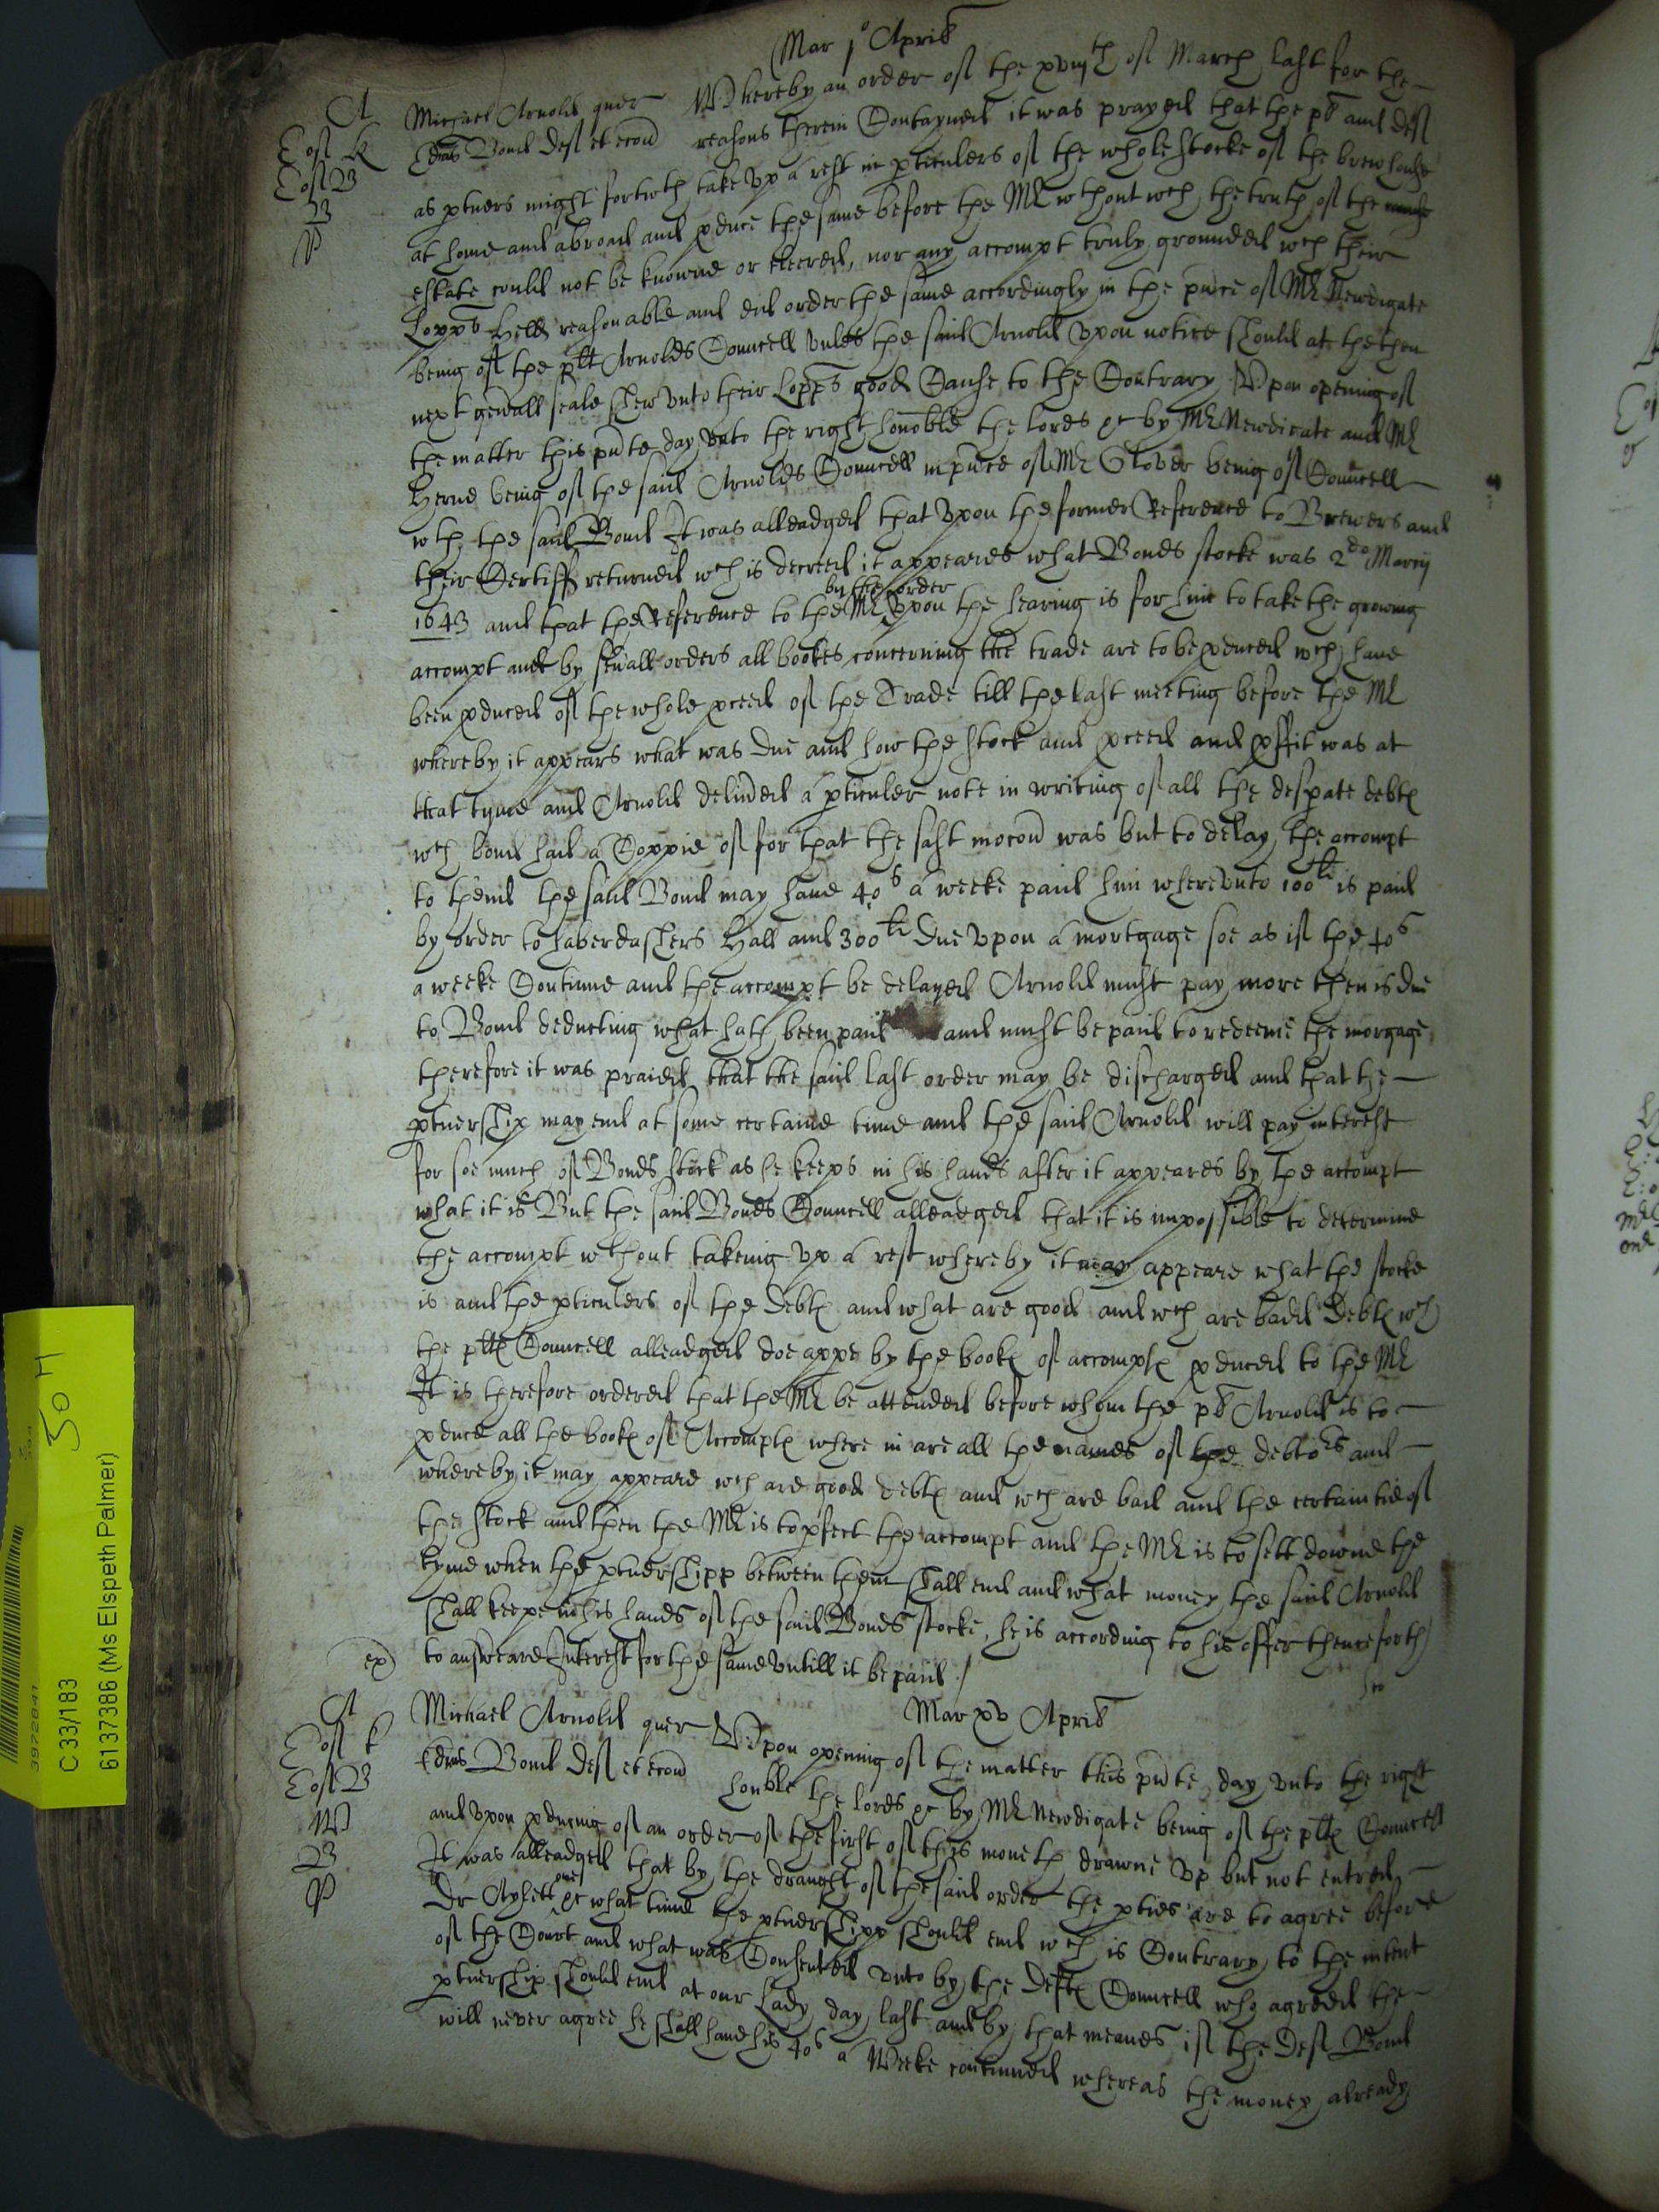 Mar 1° Aprilis
A Michael Arnold quer Whereby an order of the xviijth of March last for the
E of K Edrus Bond def et econ reasons therein Contayned it was prayed that the pl and def
E of B as ptners might forthwth take vp a rest in pticulers of the whole stocke of the brewhouse
B at home and abroad and pduce the same before the Mr wthout wch the truth of the
P estate could not be knowne or cleered, nor any accompt truly grounded wch their
Lopps held reasonable and did order the same accordingly in the pnce of Mr Newdigate
being of the plt Arnolds Councell vnles the said Arnold vpon notice should at the then
next gen'all seale shew vnto their Lopps good Cause to the Contrary Vpon opening of
the matter this pnte day vnto the right honoble the lords &c by Mr Newdicate and Mr
Herne being of the said Arnolds Councell in pnce of Mr Glover being of Councell
wth the said Bond It was alleadged that vpon the former Reference to Brewers and
their Certiff returned wch is decreed it appeares what Bonds stocke was 2do Marcij
by the order
1643 and that the Reference to the Mr vpon the hearing is for him to take the growing
accompt and by seuall orders all bookes concerning the trade are to be pduced wch haue
been pduced of the whole pceed of the Trade till the last meeting before the Mr
whereby it appears what was due and how the stock and pceed and pffit was at
that tyme and Arnold deliu'ed a pticuler note in writing of all the despate debts
wch bond had a Coppie of for that the last mocon was but to delay the accompt
to thend the said Bond may haue 40s a weeke paid him wherevnto 100li is paid
by order to haberdashers Hall and 300li due vpon a mortgage soe as if the 40s
a weeke Continue and the accompt be delayed Arnold must pay more then is due
to Bond deducting what hath been paid and must be paid to redeeme the morgage
therefore it was praied that the said last order may be discharged and that the
ptnership may end at some certaine time and the said Arnold will pay interest
for soe much of Bonds stock as he keeps in his hands after it appeares by the accompt
what it is But the said Bonds Councell alleadged that it is impossible to determine
the accompt wthout takeing vp a rest whereby it may appeare what the stocke
is and the pticulers of the debts and what are good and wch are badd debts wch
the plts Councell alleadged doe appe by the books of accompts pduced to the Mr
It is therefore ordered that the Mr be attended before whom the pl Arnold is to
pduce all the books of Accompts where in are all the names of the debtors and
whereby it may appeare wch are good debts and wch are bad and the certaintie of
the stock and then the Mr is to pfect the accompt and the Mr is to sett downe the
tyme when the ptnershipp between them shall end and what money the said Arnold
shall keepe in his hands of the said Bonds stocke, he is according to his offer thenceforth
ex to answeare Interest for the same vntill it be paid /
Mar xv Aprilis
A Michael Arnold quer Vpon opening of the matter this pnte day vnto the right
E of K Edrus Bond def et econ honble the lords &c by Mr Newdigate being of the plts Councell
E of B and vpon pducing of an order of the first of this moneth drawne vp but not entred
W It was alleadged that by the draught of the said order the pties are to agree before
one
B Dr Aylett &c what time the ptnershipp should end wch is Contrary to the intent
P of the Court and what was Consented vnto by the defts Councell who agreed the
ptnership should end at our Lady day last and by that meanes if the def Bond
will never agree he shall haue his 40s a Weeke continued whereas the money already
C 33/183
6137386 (Ms Elspeth Palmer)
3972841